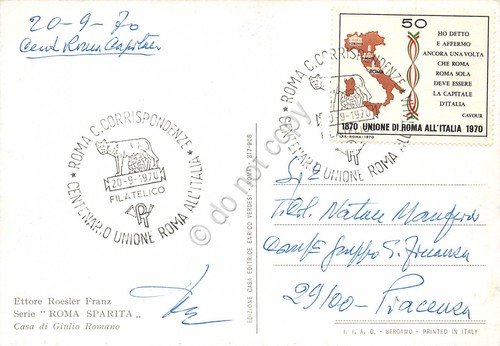 20-9-70
Cent. Roma Capitale
ROMA C. CORRISPONDENZE
20-9-1970
FILATELICO
CENTENARIO UNIONE ROMA ALL'ITALIA
Ettore Roesler Franz
Serie " ROMA SPARITA „
Casa di Giulio Romano
EDIZIONE CASA EDITRICE ENRICO VERDESI
do not copy
50
HO DETTO
E AFFERMO
ANCORA UNA VOLTA
CHE ROMA
ROMA SOLA
DEVE ESSERE
LA CAPITALE
D'ITALIA
CAVOUR
ROMA
1870 UNIONE DI ROMA ALL'ITALIA 1970
I.P.S.-ROMA-1970
ROMA C. CORRISPONDENZE
20-9-1970
CENTENARIO UNIONE ROMA ALL'ITALIA
Natale
Gruppo G. Finanza
29100 - Piacenza
I. I. A. G. - BERGAMO - PRINTED IN ITALY